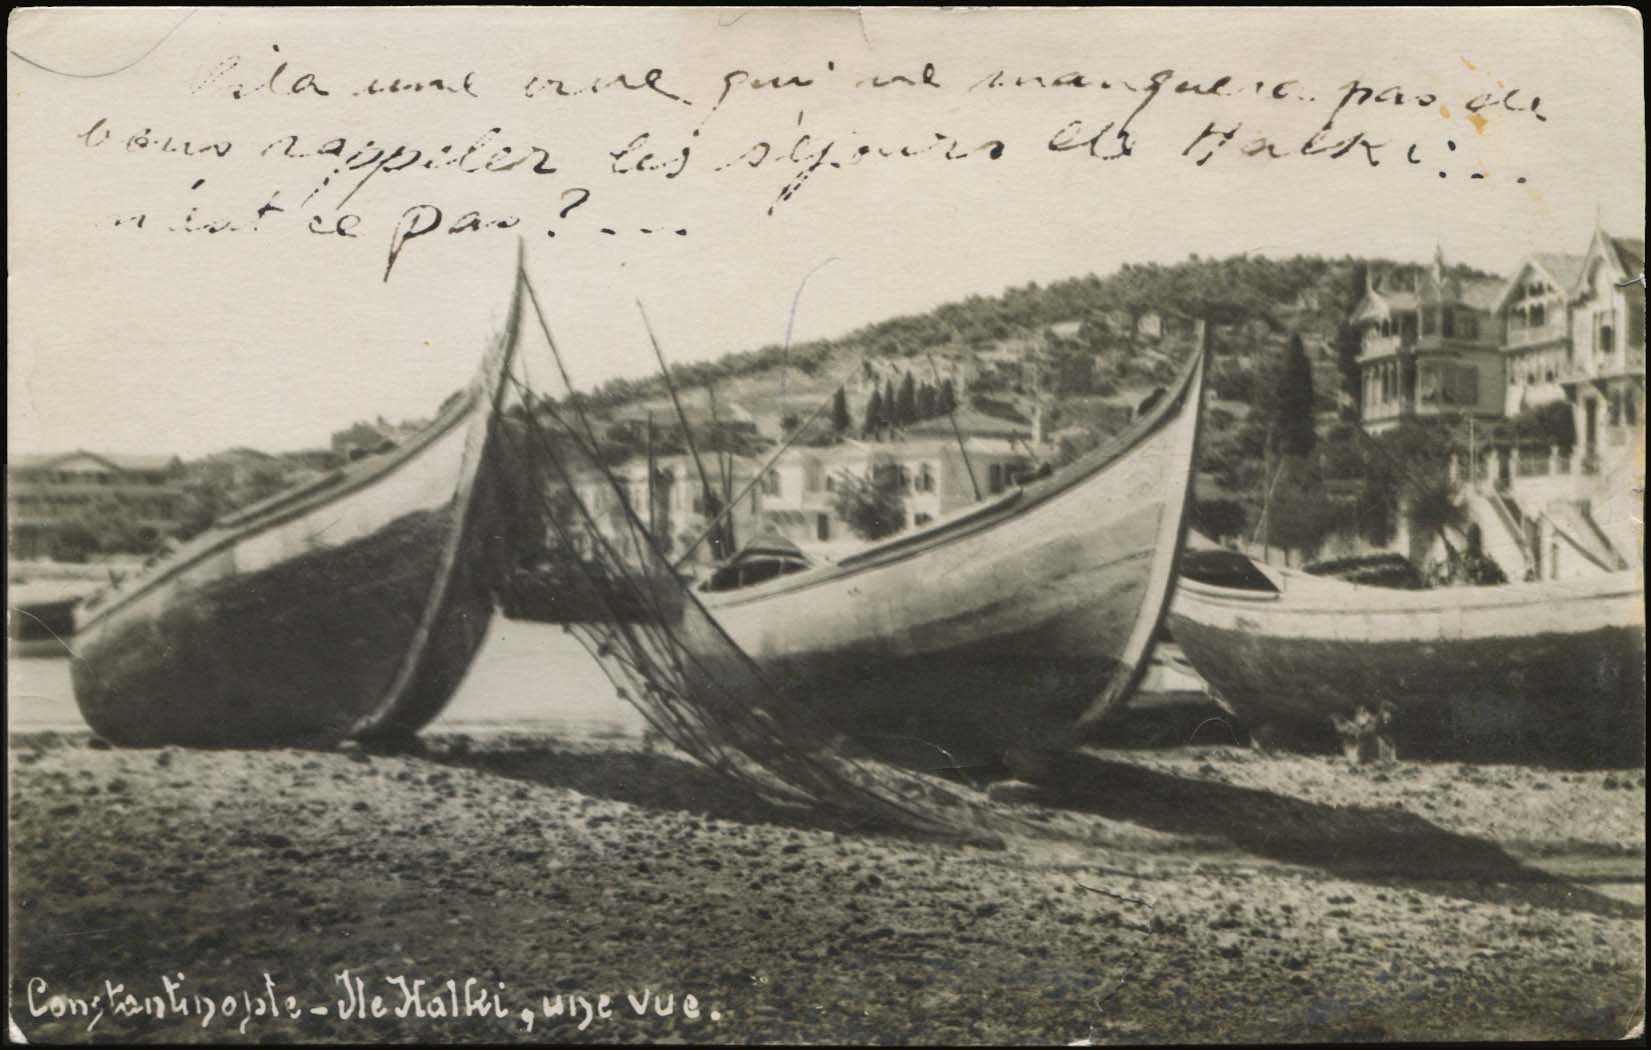 Vila une vue qui ne manquera pas de
vous rappeler les séjours de Halki...
n'est ce pas?....
Constantinople - Ile Halki, une vue.